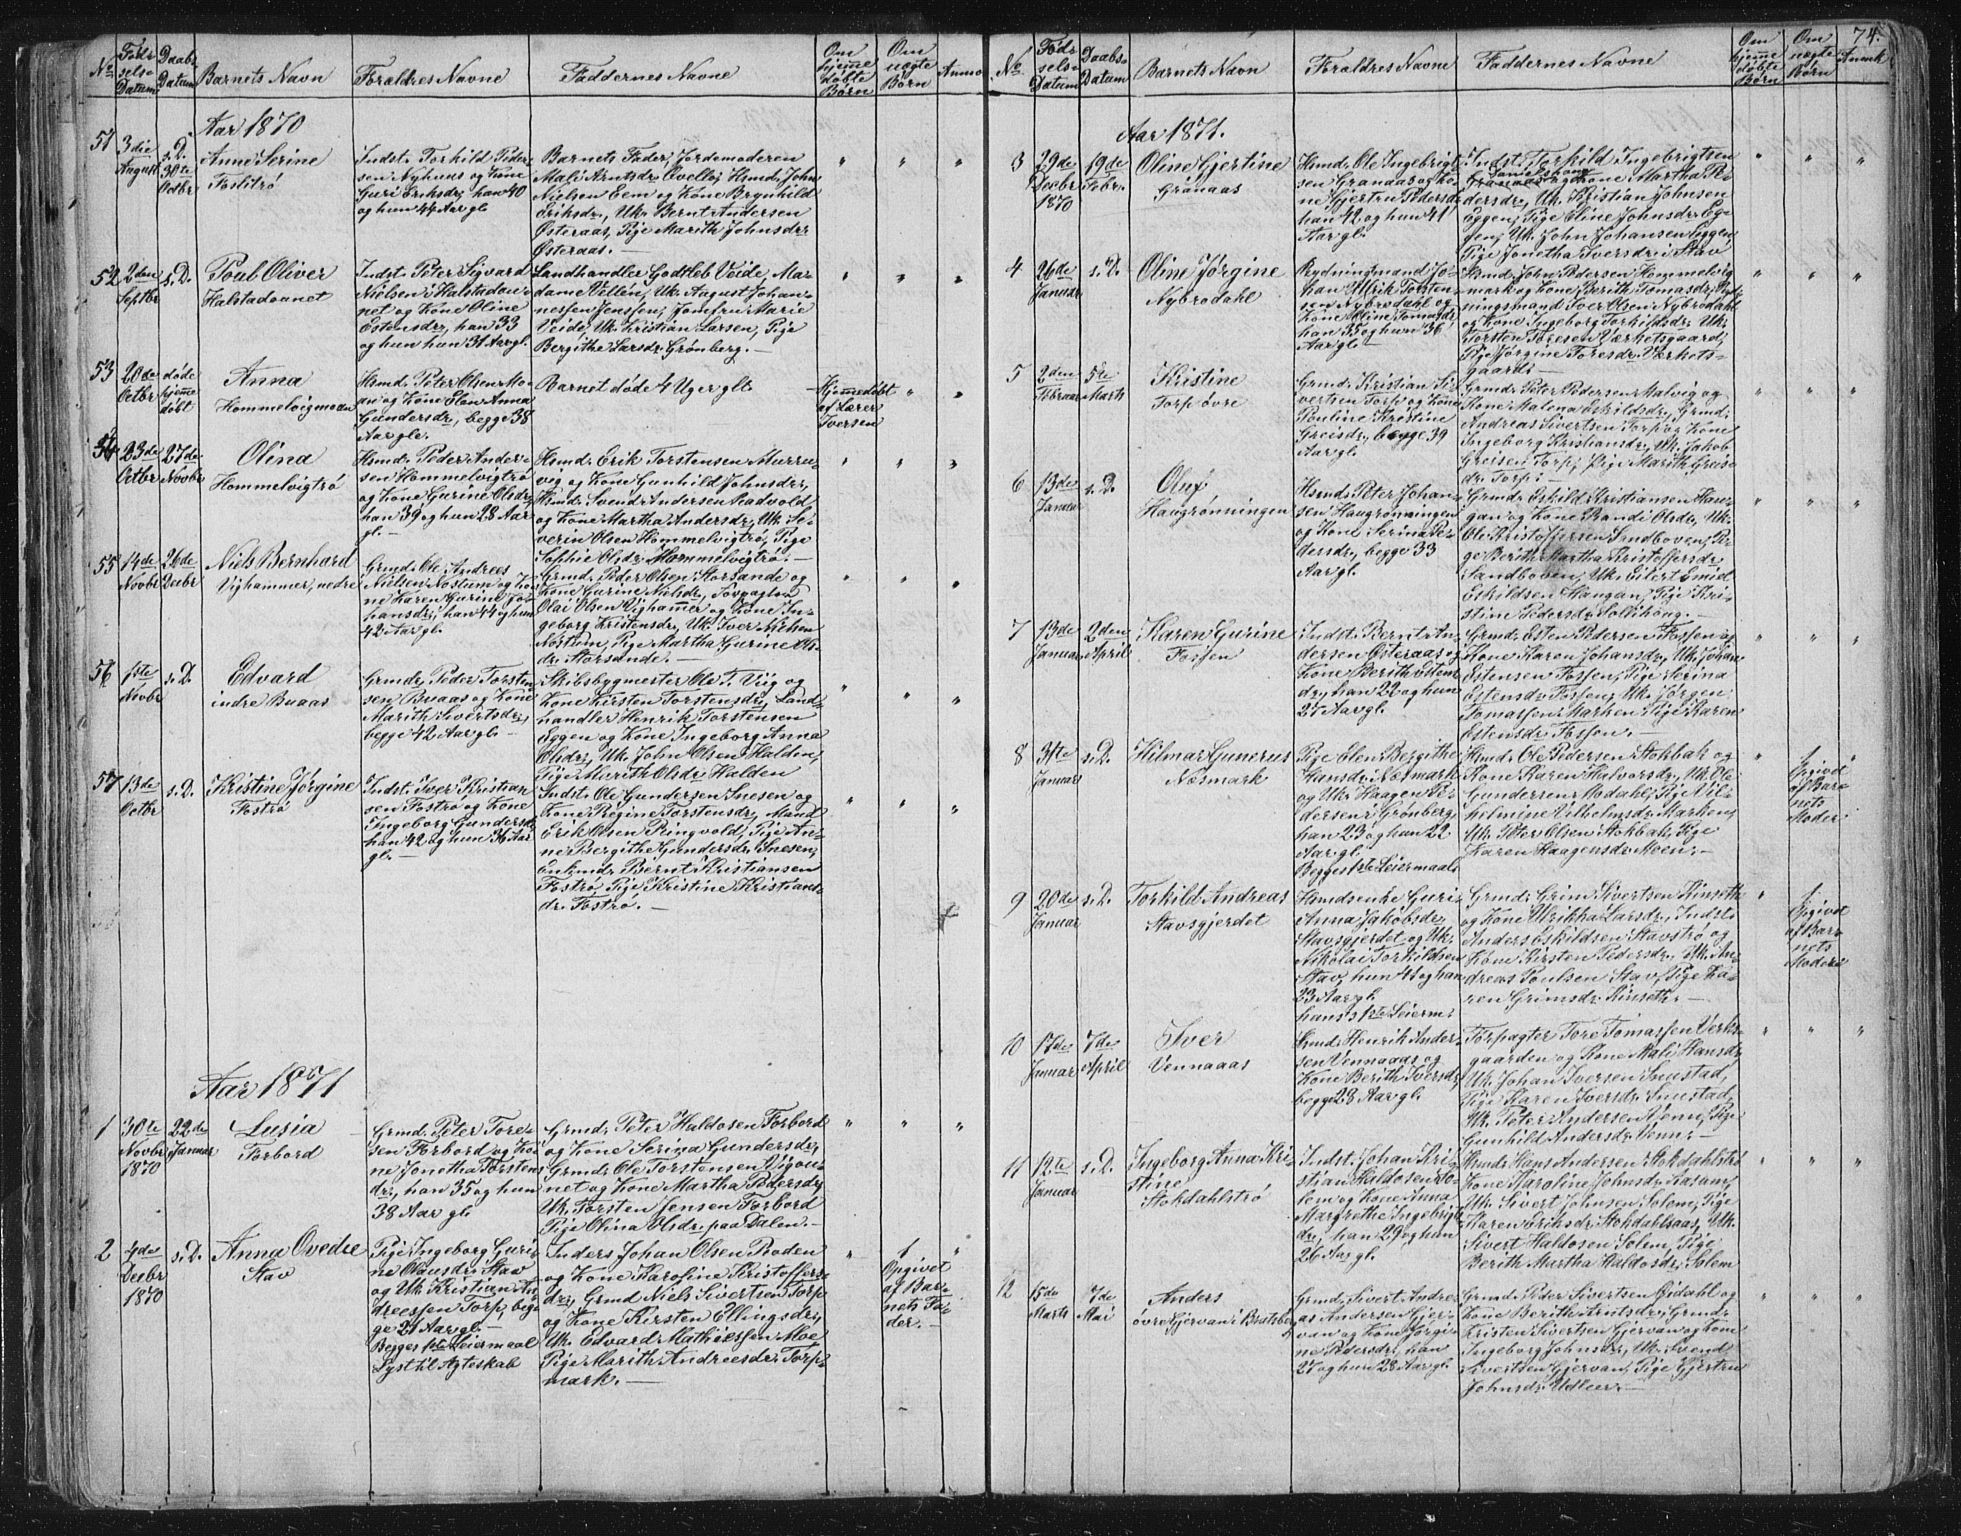 74.
No
Fød-
selse
Datum
Daabs
Datum
Barnets Navn
Foraldres Navne
Faddernes Navne
Om
hjemme
døbte
Børn
Om
uægte
Børn
Aar 1870
51
3die
August
s. D.
30te
Octbr
Anne Serine
Foslitrø
Indst. Torkild Peder-
sen Nyhuus og Kone
Guri Eriksdr, han 40
og hun 44 Aar gl.
Barnets Fader, Jordemoderen
Mali Arntsdr Ovelbj, Hsmd: John
Nielsen Eem og Kone Brynhild
Eriksdr, Uk: Bernt Andersen
Østeraas, Pige Marith Johnsdr:
Østeraas. —
52
2den
Septbr
s. D.
Poul Oliver
Halstadvanet
Indst. Peter Sigvard
Nielsen i Halstadva-
net og Kone Oline
Estensdr, han 33
og hun han 31 Aar gl.
Landhandler Godtleb Veide, Ma-
dame Villén, Uk: August Johan-
nessen Jenssen, Jomfru Marie
Veide, Uk: Kristian Larsen, Pige
Bergithe Larsdr. Grønberg. —
53
20de
Octbr
døde
hjemme
døbt
Anna
Hommelvigmoen
Hsmd: Peter Olsen Mo-
an og Kone Elen Anna
Gundersdr, begge 38
Aar gl.
Barnet døde 4 Uger gl.
Hjemmedøbt
af Lærer
Iversen
54
23de
Octbr
27de
Novbr
Olina
Hommelvigtrø
Hsmd: Peder Ander-
sen Hommelvigtrø
og Kone Gurine Olsdr,
han 39 og hun 28 Aar
gl. —
Hsmd: Erik Torstensen Murru-
vig og Kone Gunhild Johnsdr,
Hsmd: Svend Andersen Aadvold
og Kone Martha Andersdr, Uk: Se-
verin Olsen Hommelvigtrø, Pige
Sophie Olsdr. Hommelvigtrø. —
55
14de
Novbr
26de
Decbr
Niels Bernhard
Vighammer, nedre
Grmd: Ole Andreas
Nielsen Nostum og Ko-
ne Karen Gurine Jo-
hansdr, han 44 og hun
42 Aar gl.
Grmd: Peder Olsen Storsande og
Kone Gurine Nielsdr, Forpagter
Olai Olsen Vighammer og Kone In-
geborg Kristensdr, Uk: Iver Nielsen
Nostum, Pige Martha Gurine Ols-
dr. Storsande. —
56
1ste
Novbr
s. D.
Edvard
indre Buaas
Grmd: Peder Torsten-
sen Buaas og Kone
Marith Sivertsdr,
begge 42 Aar gl. —
Skibsbygmester Ole T. Viig og
Kone Kirsten Torstensdr, Land-
handler Henrik Torstensen
Eggen og Kone Ingeborg Anna
Olsdr, Uk: John Olsen Halden,
Pige Marith Olsdr. Halden
57
13de
Octbr
s. D.
Kristine Jørgine
Fostrø
Indst: Iver Kristian-
sen Fostrø og Kone
Ingeborg Gundersdr,
han 42 og hun 36 Aar
gl. —
Indst: Ole Gundersen Snesen og
Kone Regine Torstensdr, Mand
Erik Olsen Ringvold, Pige An-
ne Bergithe Gundersdr. Snesen,
Enkmd: Bernt Kristiansen
Fostrø, Pige Kristine Kristians-
dr. Fostrø. —
Aar 1871
1
30te
Novbr
1870
22de
Januar
Lusia
Forbord
Grmd: Peter Tore-
sen Forbord og Ko-
ne Jonetha Torstens-
dr, han 35 og hun
38 Aar gl.
Grmd: Peter Haldosen Forbord
og Kone Serina Gundersdr,
Grmd: Ole Torstensen Vigva-
net og Kone Martha Pedersdr,
Uk: Torsten Jensen Forbord
Pige Olina Olsdr. paa Dalen. —
2
4de
Decbr
1870
s. D.
Anna Ovedie
Stav
Pige Ingeborg Guri-
ne Olausdr. Stav
og Uk: Kristian An-
dreessen Torp, beg-
ge 21 Aar gl. —
Begges 1ste Leiermaal
Lyst til Ægteskab
Inders Johan Olsen Roden
og Kone Karoline Kristoffers-
dr, Grmd Niels Sivertsen Torp
og Kone Kirsten Ellingsdr,
Uk: Edvard Mathiessen Moe
Pige Marith Andreesdr Torp-
mark. —
1
Opgivet
af Bar-
nets Fa-
der. —
No
Fød-
selse
Datum
Daabs
Datum
Barnets Navn
Foraldres Navne
Faddernes Navne
Om
hjemme
døbte
Børn
Om
uægte
Børn
Anmk
Aar 1871.
3
29de
Decbr
1870
19de
Febr.
Oline Gjertine
Granaas
Hsmd: Ole Ingebrigt-
sen Granaas og Ko-
ne Gjertru Pedersdr
han 42 og hun 41
Aar gl.
Indst: Torkild Ingebrigtsen
og Kone Martha Pe-
dersdr, Uk: Kristian Johnsen
Eggen, Pige Eline Johnsdr. Eg-
gen, Uk: John Johansen Eggen,
Pige Jonetha Iversdr. Stav
4
26de
Januar
s. D.
Oline Jørgine
Nybrodahl
Rydningsmand Jo-
han Ulrik Torsten-
sen Nybrodahl og
Kone Oline Tomasdr
han 35 og hun 36
Aar gl.
Hsmd: John Pedersen Hommelvig-
mark og Kone Berith Tomasdr, Ryd-
ningsmand Iver Olsen Nybrodahl
og Kone Ingeborg Torkildsdr, Uk:
Torsten Toresen Værketsgaard,
Pige Jørgine Toresdr. Værkets-
gaard. —
5
2den
Februar
5te
Marts
Kristine
Torp øvre
Grmd: Kristian Si-
vertsen Torp og Kone
Pauline Kristine
Greisdr, begge 39
Aar gl.
Grmd: Peter Pedersen Malvig og
Kone Malena Eskildsdr, Grmd:
Andreas Sivertsen Torp og Kone
Ingeborg Kristiansdr, Uk: Jakob
Greisen Torp, Pige Marith Greis-
dr. Torp.
6
13de
Januar
s. D.
Oluf
Haugrønningen
Hsmd: Peter Johan-
sen Haugrønningen
og Kone Serina Pe-
dersdr, begge 33
Aar gl.
Grmd: Eskild Kristiansen Hau-
gan og Kone Brandi Olsdr, Uk:
Ole Kristoffersen Sandboven, Pi-
ge Berith Martha Kristoffersdr.
Sandboven, Uk: Eilert Emil
Eskildsen Haugan, Pige Kri-
stine Pedersdr. Sollihøug. —
7
13de
Januar
2den
April
Karen Gurine
Fossen
Indst: Bernt An-
dersen Østeraas og
Kone Berith Estens-
dr, han 22 og hun
27 Aar gl.
Grmd: Esten Pedersen Fossen og
Kone Karen Johansdr, Uk: Johan
Estensen Fossen, Pige Serina
Estensdr Fossen, Uk: Jørgen
Tomassen Marken, Pige Karen
Estensdr. Fossen. —
8
31te
Januar
s. D.
Hilmar Gunerus
Næsmark
Pige Elen Bergithe
Hansdr. Næsmark
og Uk: Haagen Pe-
dersen Grønberg
han 23 og hun 22
Aar gl.
Begges 1ste Leiermaal
Hsmd: Ole Pedersen Stokbak og
Kone Karen Halvorsdr, Uk: Ole
Gundersen Modahl, Pige Vil-
helmine Vilhelmsdr. Marken,
Uk: Peter Olsen Stokbak, Pige
Karen Haagensdr. Moen. —
1
Opgivet
af Bar-
nets
Moder
9
20de
Januar
s. D.
Torkild Andreas
Stavsgjerdet
Hsmdsenke Guri-
Anna Jakobsdr
Stavsgjerdet og Uk:
Nikolai Torkildsen
Stav, hun 41 og han
23 Aar gl.
hans 1ste Leierm:
Grmd: Grim Sivertsen Kinseth
og Kone Ulrikka Larsdr, Indst:
Anders Eskildsen Stavstrø og
Kone Kirsten Pedersdr, Uk: An-
dreas Poulsen Stav, Pige Ka-
ren Grimsdr. Kinseth. —
1
Opgivet
af Bar-
nets
Moder
10
17de
Januar
7de
April
Iver
Vennaaas
Hsmd: Henrik Ander-
sen Vennaaas og
Kone Berith Iversdr,
begge 28 Aar gl.
Forpagter Tore Tomassen Verks-
gaarden og Kone Mali Hansdr,
Uk: Johan Iversen Snustad,
Pige Karen Iversdr. Snustad,
Uk: Peter Andersen Venn, Pige
Gunhild Andersdr. Venn. —
11
12te
Januar
s. D.
Ingeborg Anna Kri-
stine
Stokdahlstrø
Indst: Johan Kri-
stian Haldosen So-
lem og Kone Anna
Margrethe Ingebrigts-
dr, han 29 og hun
26 Aar gl.
Hsmd: Hans Andersen Stokdahlstrø
Kone Karoline Johnsdr.
Uk: Sivert Johnsen Solem, Pige
Karen Eriksdr. Stokdahlsaas, Uk:
Sivert Haldosen Solem, Pige
Berith Martha Haldosdr. Solem
12
15de
Marts
7de
Mai
Anders
øvre Gjervan i Bratsberg
Grmd: Sivert Andre-
as Andersen Gjer-
van og Kone Jørgi-
ne Pedersdr, han
27 og hun 28 Aar gl.
Grmd: Peder Sivertsen Øidahl og
Kone Berith Arntsdr, Grmd:
Kristen Sivertsen Gjervan og Kone
Ingeborg Johnsdr, Uk: Svend
Sivertsen Gjervan, Pige Gjertru
Johnsdr. Udleer. —